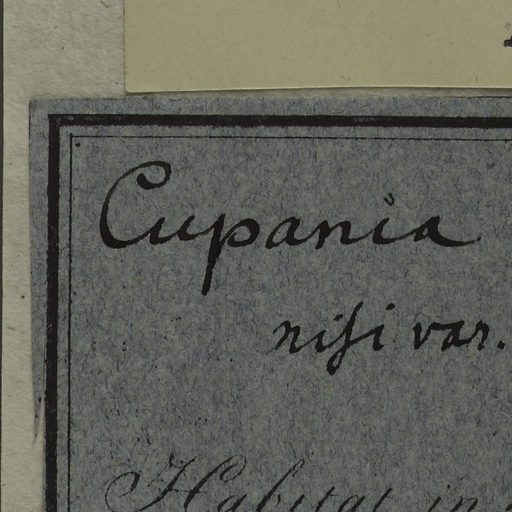 Cupania
nisi var.
Habitat in